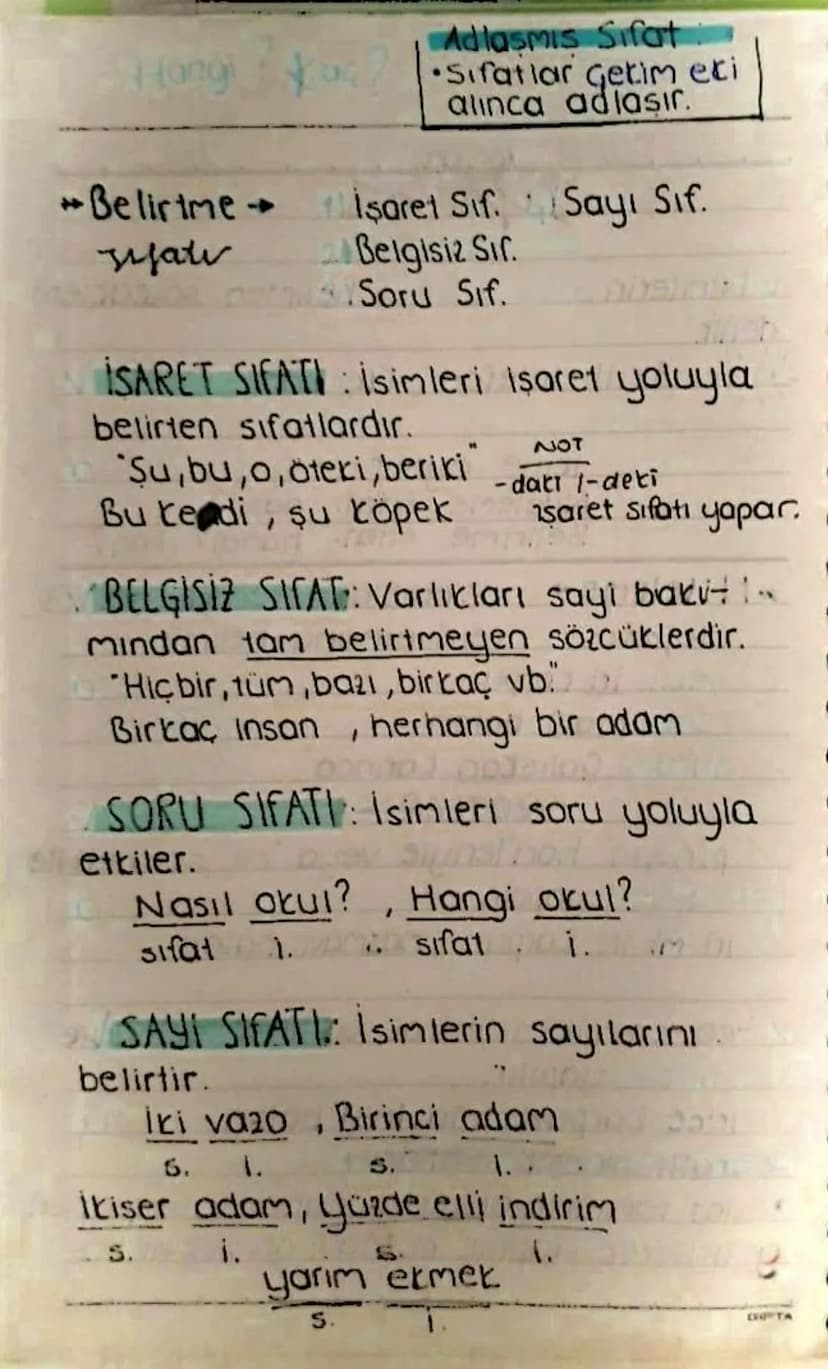 Adlaşmış Sıfat :
• Sıfatlar Çekim eki
alınca adlaşır.
Belirtme → İşaret Sıf. Sayı Sıf.
sıfatı Belgisiz Sıf.
Soru Sıf.
İŞARET SIFATI : İsimleri işaret yoluyla
belirten sıfatlardır.
"Şu, bu, o, öteki, beriki"
NOT
-daki / -deki
işaret sıfatı yapar.
Bu kedi, şu köpek
BELGİSİZ SIFAT : Varlıkları sayi bakı-
mından tam belirtmeyen sözcüklerdir.
"Hiçbir, tüm, bazı, birkaç vb."
Birkaç insan, herhangi bir adam
SORU SIFATI : İsimleri soru yoluyla
etkiler.
Nasıl okul? , Hangi okul?
sıfat i. sıfat i.
SAYI SIFATI : İsimlerin sayılarını
belirtir.
İki vazo, Birinci adam
s. i. s. i.
İkişer adam, Yüzde elli indirim
s. i. s. i.
yarım ekmek
s. i.